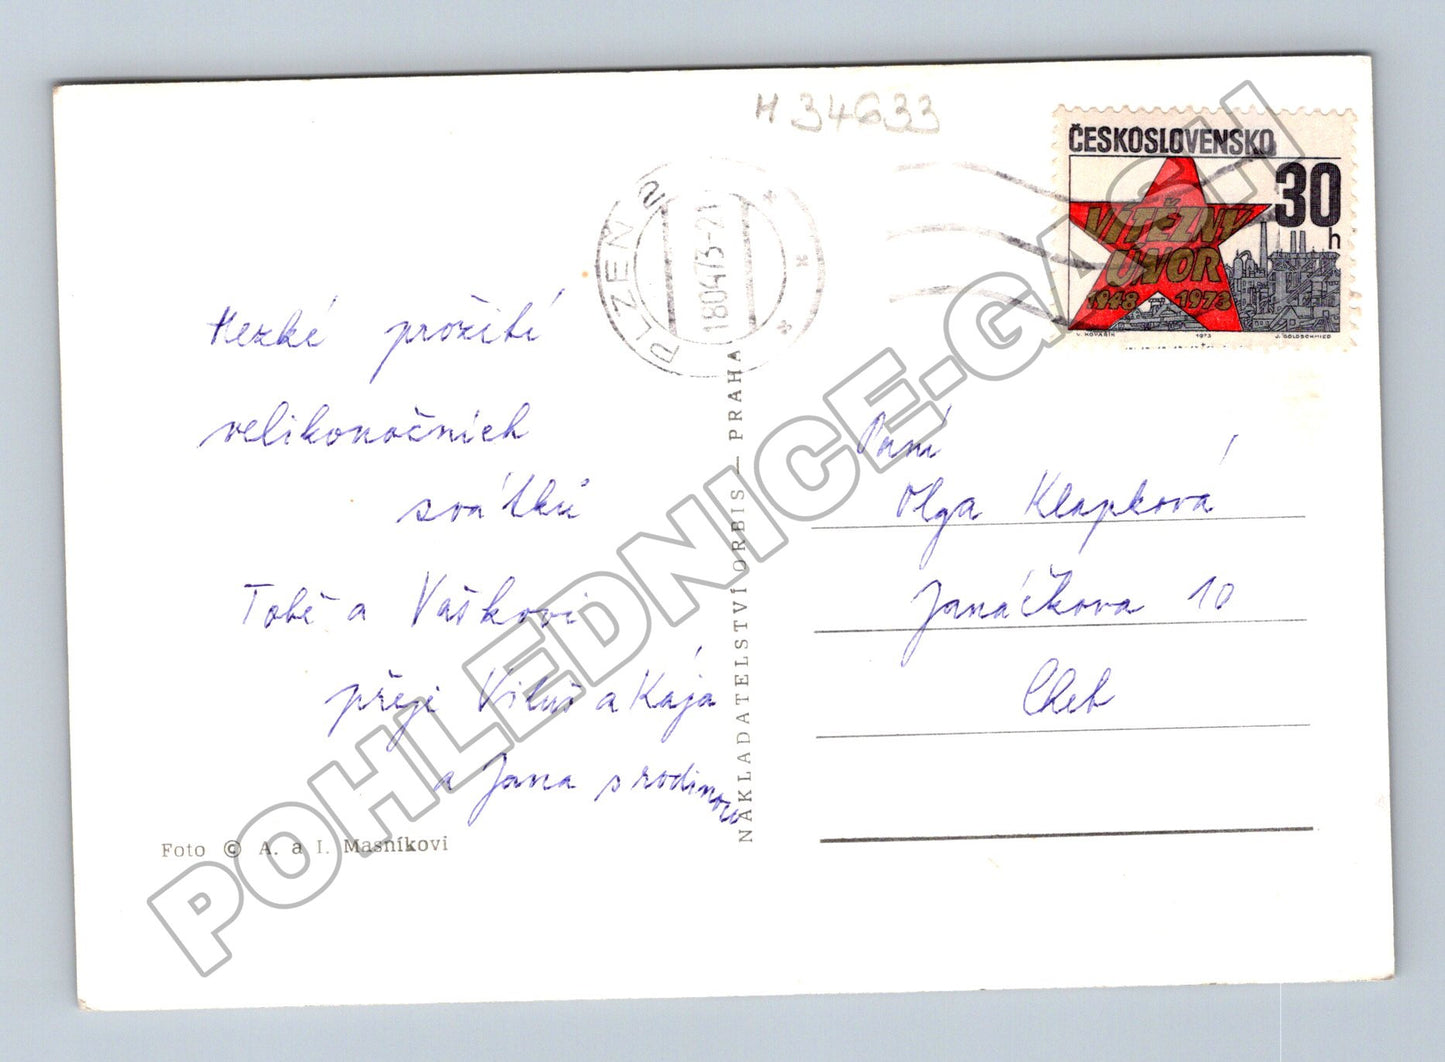 H 34633
ČESKOSLOVENSKO
30
h
VÍTĚZNÝ
ÚNOR
1948 1973
V. KOVAŘÍK 1973 J. GOLDSCHMIED
PLZEŇ 2
18.04.73-21
Hezké prožití
velikonočních
svátků
Tobě a Vaškovi
přeje Viluš a Kája
a Jana s rodinou
Foto © A. a I. Masníkovi
NAKLADATELSTVÍ ORBIS — PRAHA
Paní
Olga Klapková
Janáčkova 10
Cheb
POHLEDNICE-GASH